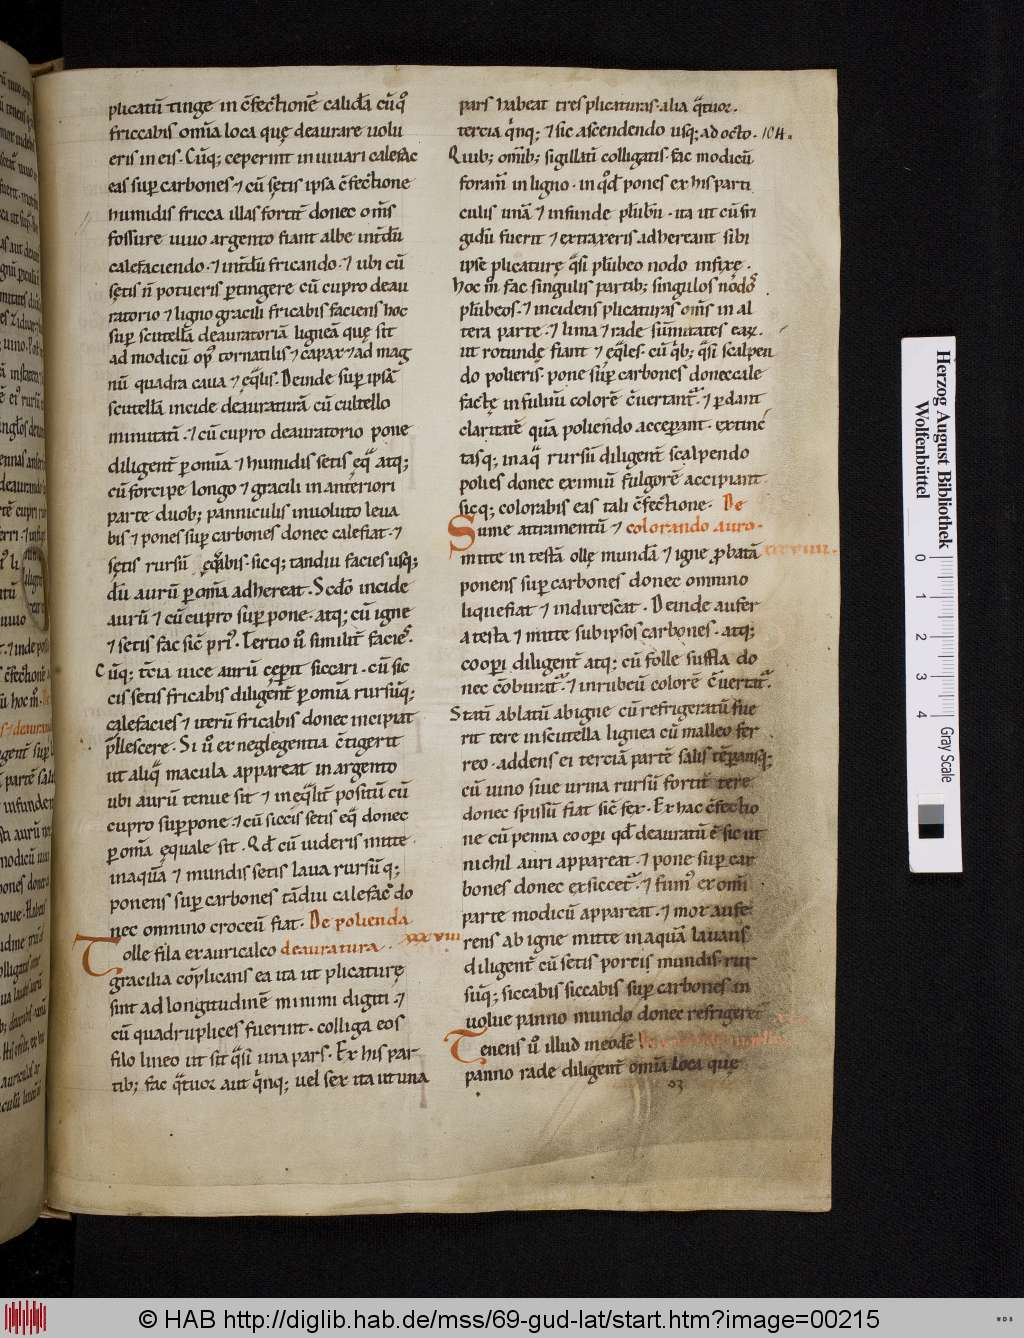 plicatū tinge in c̄fectionē calidā cūqꝫ
friccabis om̄ia loca quę deaurare uolu
eris in eis. Cūqꝫ ceperint in uiuari calefac
eas sup̄ carbones ⁊ cū sętis ipsa c̄fectione
humidis fricca illas fortit̄ donec om̄s
fossure uiuo argento fiant albe int̄dū
calefaciendo. ⁊ int̄dū fricando. ⁊ ubi cū
sętis n̄ potueris ꝑtingere cū cupro deau
ratorio ⁊ ligno gracili fricabis faciens hoc
sup̄ scutellā deauratoriā ligneā quę sit
ad modicū op̄ tornatilis ⁊ capax ⁊ ad mag
nū quadra caua ⁊ ęq̄lis. Deinde sup̄ ipsā
scutellā incide deauraturā cū cultello
minutatī. ⁊ cū cupro deauratorio pone
diligent̄ ꝑ om̄ia ⁊ humidis setis eq̄ atqꝫ
cū forcipe longo ⁊ gracili in anteriori
parte duobꝫ panniculis inuoluto leua
bis ⁊ pones sup̄ carbones donec calefiat. ⁊
sętis rursū ęq̄bis. sicqꝫ tandiu facies usqꝫ
dū aurū ꝑ om̄ia adhereat. Scd̄o incide
aurū ⁊ cū cupro sup̄pone. atqꝫ cū igne
⁊ setis fac sic̄ pri᷒. Tertio u̾o similit̄ facies.
Cūqꝫ t̄cia uice aurū cep̄it siccari. cū sic
cis setis fricabis diligent̄ ꝑ om̄ia rursūqꝫ
calefacies ⁊ iterū fricabis donec incipiat
p̄llescere. Si u̾o ex neglegentia c̄tigerit
ut aliq̄ macula appareat in argento
ubi aurū tenue sit ⁊ ineq̄lit̄ positū cū
cupro sup̄pone. ⁊ cū siccis setis eq̄ donec
ꝑ om̄ia ęquale sit. Qd̄ cū uideris mitte
in aquā ⁊ mundis setis laua rursūqꝫ
ponens sup̄ carbones tādiu calefac do
nec omnino croceū fiat. De polienda
Tolle fila ex auricalco deauratura. xxxviii
gracilia cōplicans ea ita ut plicaturę
sint ad longitudinē minimi digiti. ⁊
cū quadruplices fuerint. colliga eos
filo lineo ut sit q̄si una pars. Ex his par
tibꝫ fac q̄tuor aut q̄nqꝫ uel sex ita ut una
pars habeat tres plicaturas. alia q̄tuor.
tercia q̄nqꝫ ⁊ sic ascendendo usqꝫ ad octo. 104.
Quibꝫ om̄ibꝫ sigillatī colligatis. fac modicū
foram̄ in ligno. in qd̄ pones ex his parti
culis unā ⁊ infunde plūbū. ita ut cū fri
gidū fuerit ⁊ extraxeris adhereant sibi
ipse plicaturę q̄si plūbeo nodo infixę.
Hoc m̄ fac singulis partibꝫ singulos nodos
plūbeos. ⁊ incidens plicaturas om̄s in al
tera parte. ⁊ lima ⁊ rade sūmitates eaꝝ.
ut rotundę fiant ⁊ ęq̄les. cū q̄bꝫ q̄si scalpen
do polieris. pone sup̄ carbones donec cale
factę in fuluū colorē c̄uertant̄. ⁊ ꝑdant
claritatē quā poliendo acceperant. extinc
tasqꝫ in aq̄ rursū diligent̄ scalpendo
polies donec eximiū fulgorē accipiant
sicqꝫ colorabis eas tali c̄fectione. De
Sume attramentū ⁊ colorando auro.
mitte in testā ollę mundā ⁊ igne ꝓbatā xxxviiii.
ponens sup̄ carbones donec omnino
liquefiat ⁊ indurescat. Deinde aufer
a testa ⁊ mitte sub ipsos carbones. atqꝫ
coop̄i diligent̄ atqꝫ cū folle suffla do
nec c̄burat̄. ⁊ in rubeū colorē c̄uertat̄.
Statī ablatū ab igne cū refrigeratū fue
rit tere in scutella lignea cū malleo fer
reo. addens ei terciā partē salis tēpansqꝫ
cū uino siue urina rursū fortit̄ tere
donec spissū fiat sic̄ fęx. Ex hac c̄fectio
ne cū penna coop̄i qd̄ deauratū ē sic ut
nichil auri appareat. ⁊ pone sup̄ car
bones donec exsiccet̄. ⁊ fum᷒ ex om̄i
parte modicū appareat. ⁊ mox aufe
rens ab igne mitte in aquā lauans
diligent̄ cū setis porcis mundis. rur
sūqꝫ siccabis siccabis sup̄ carbones in
uolue panno mundo donec refrigeret
Tenens u̾o illud meodē
panno rade diligent̄ om̄ia loca quę
03
Herzog August Bibliothek
Wolfenbüttel
0 1 2 3 4
Gray Scale
© HAB http://diglib.hab.de/mss/69-gud-lat/start.htm?image=00215